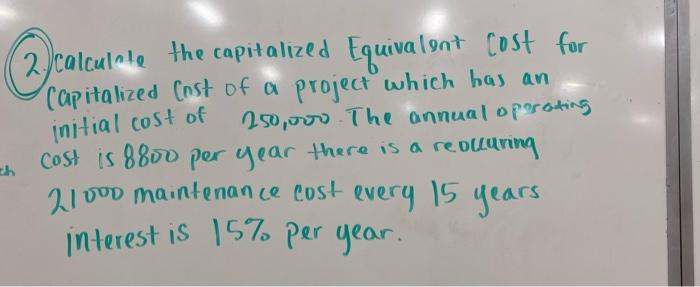 2. calculate the capitalized Equivalent Cost for
Capitalized Cost of a project which has an
initial cost of 250,000. The annual operating
th cost is 8800 per year there is a reoccuring
21000 maintenance cost every 15 years
interest is 15% per year.